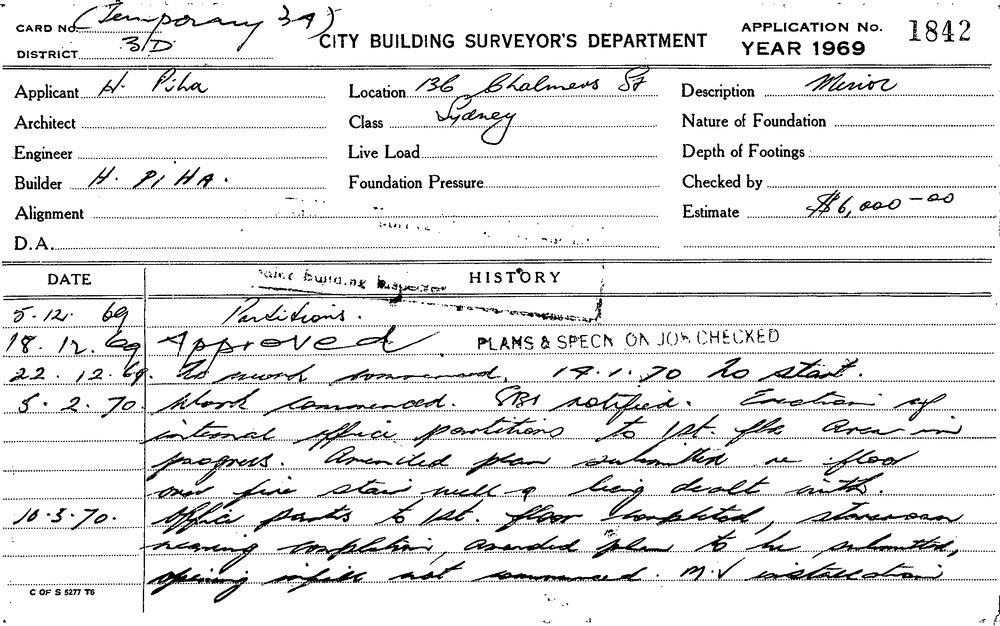 CARD No. (Temporary 3A)
DISTRICT 3/D
CITY BUILDING SURVEYOR'S DEPARTMENT
APPLICATION No. 1842
YEAR 1969
Applicant H. Piha
Location 136 Chalmers St
Sydney
Description Minor
Architect
Class
Nature of Foundation
Engineer
Live Load
Depth of Footings
Builder H. PIHA.
Foundation Pressure
Checked by
Alignment
Estimate $6,000-00
D.A.
DATE
HISTORY
Building Inspector
5.12.69 Partitions.
18.12.69 Approved PLANS & SPECN ON JOB CHECKED
22.12.69. No work commenced. 14.1.70 No start.
5.2.70. Work commenced. SBI notified. Erection of
internal office partitions to 1st. flr area in
progress. Amended plan submitted re floor
over fire stair well & being dealt with.
10.3.70. Office parts to 1st. floor completed, storeroom
nearing completion, amended plan to be submitted,
opening infill not commenced. M.V installation
C OF S 5277 T6